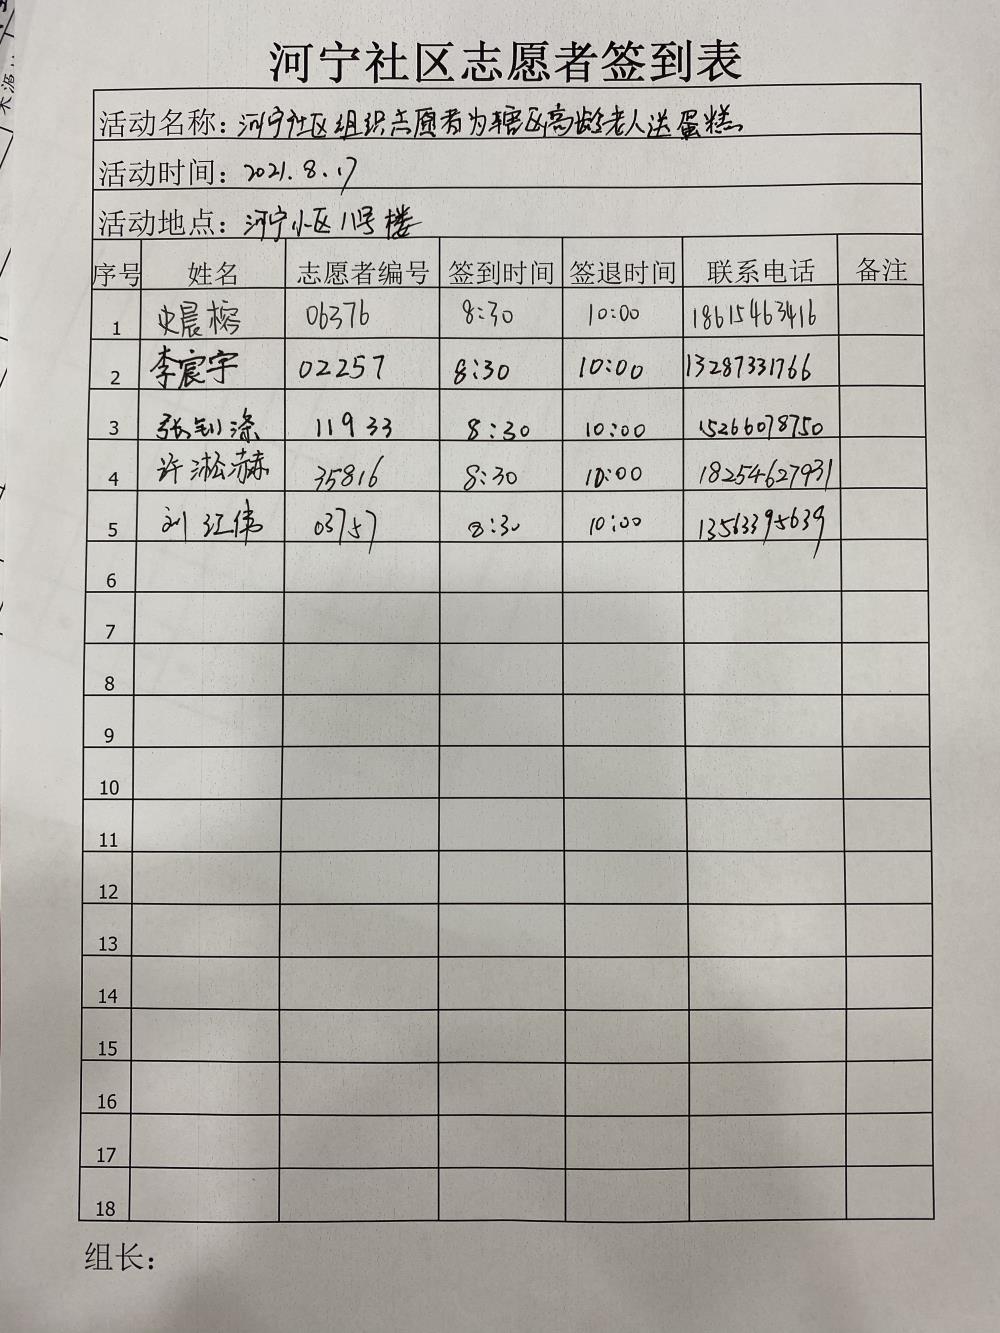 河宁社区志愿者签到表
活动名称：河宁社区组织志愿者为辖区高龄老人送蛋糕
活动时间：2021.8.17
活动地点：河宁小区11号楼
序号 姓名 志愿者编号 签到时间 签退时间 联系电话 备注
1 史晨榕 06376 8:30 10:00 18615463416
2 李宸宇 02257 8:30 10:00 13287331766
3 张钊涤 11933 8:30 10:00 15266078750
4 许淞赫 35816 8:30 10:00 18254627931
5 刘江伟 03757 8:30 10:00 13563395639
6
7
8
9
10
11
12
13
14
15
16
17
18
组长：